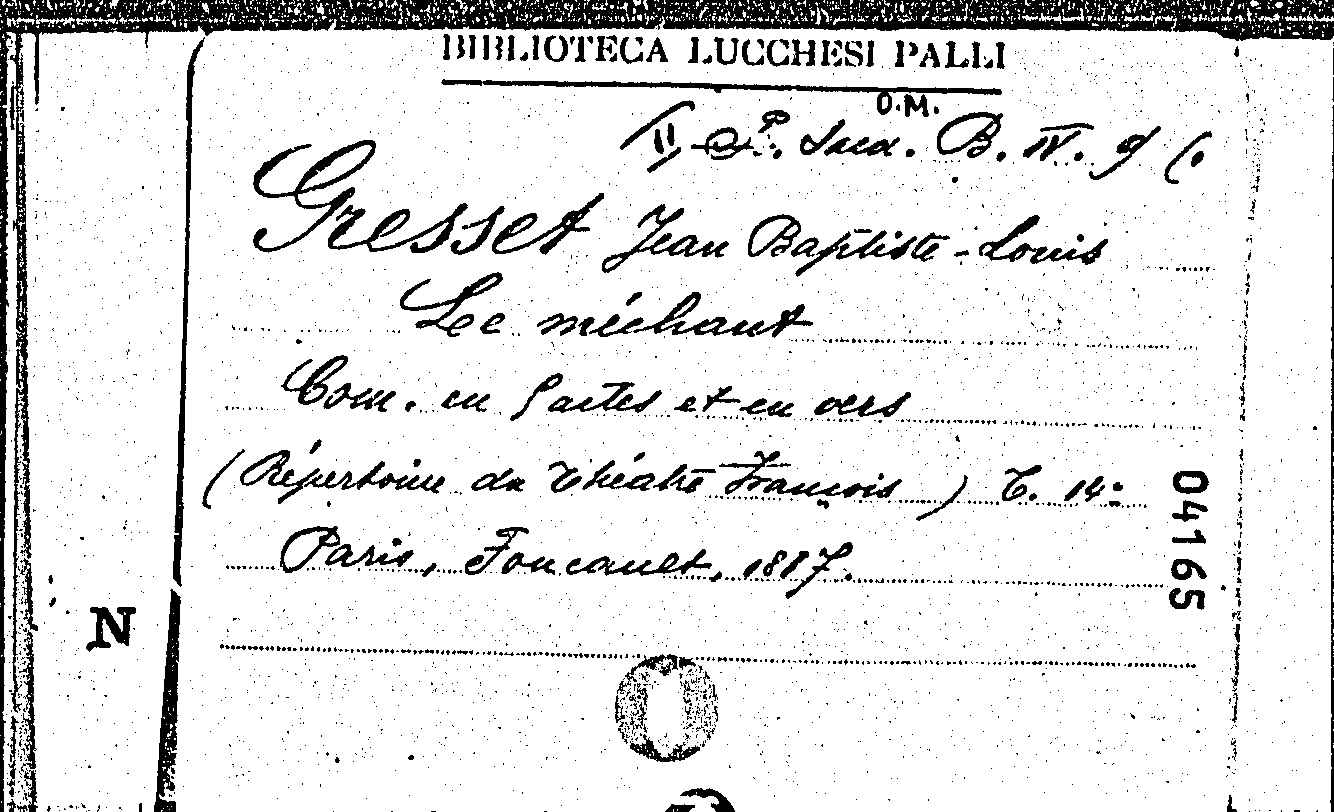 BIBLIOTECA LUCCHESI PALLI
O.M.
B. IV. 9 (.
Gresset Jean Baptiste-Louis
Le méchant
Com. en 5 actes et en vers
(Répertoire du Théatre François) T. 14:
Paris, Foucault, 1887.
04165
N